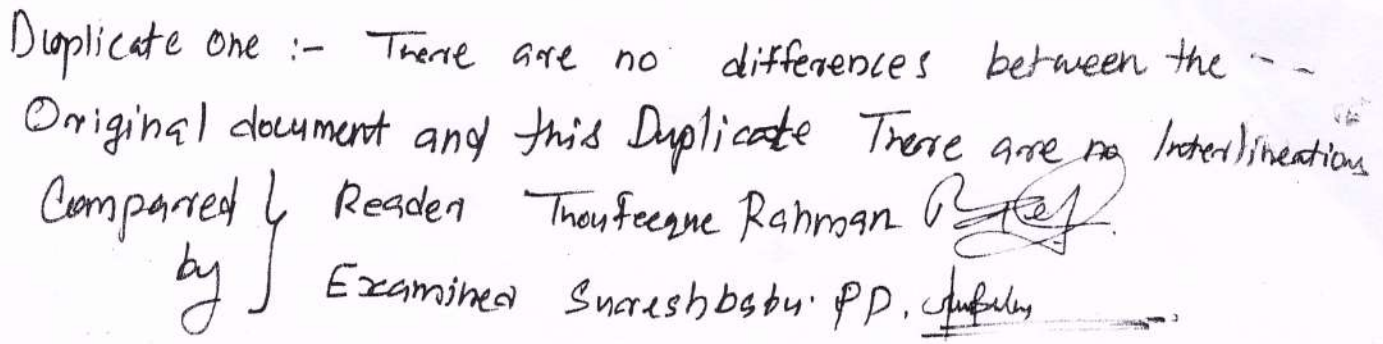 Duplicate one :- There are no differences between the --
Original document and this Duplicate There are no Interlineations
Compared } Reader Thoufeeque Rahman
by } Examiner Sureshbabu. P D.